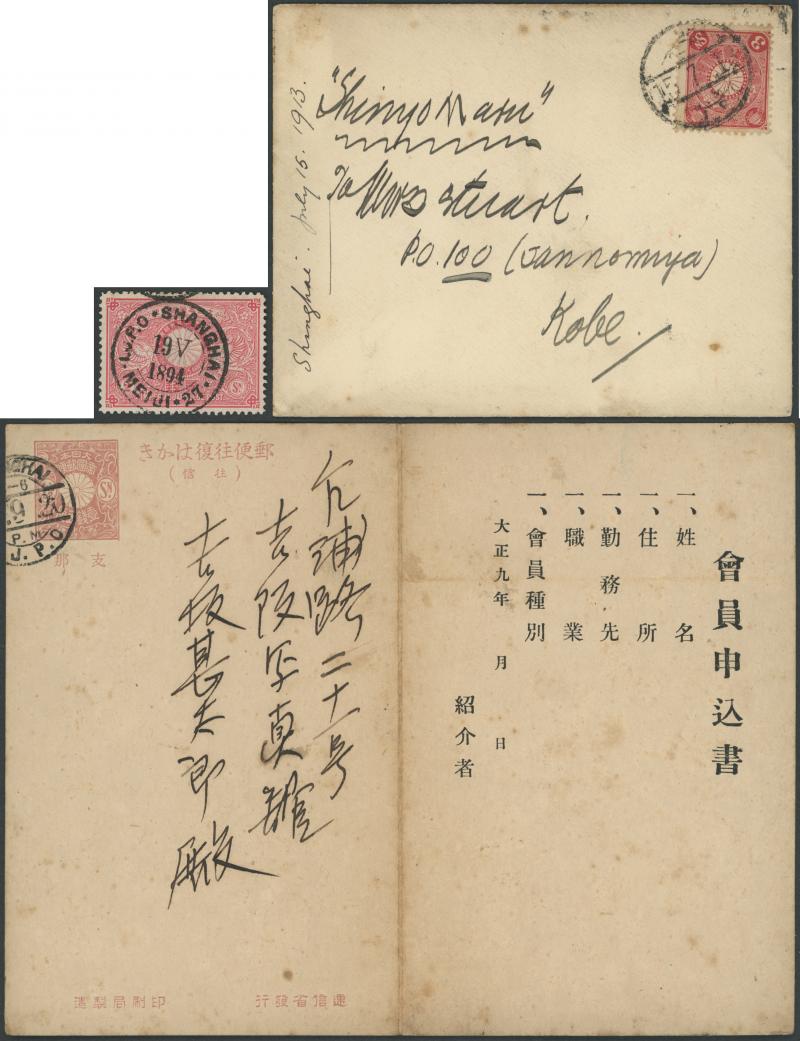 Shinghai. July 15. 1913.
"Shinyo Maru"
To Mrs Steuart.
P.O. 100 (Sannomiya)
Kobe.
3
I.J.P.O • SHANGHAI
19 V
1894
MEIJI • 27
郵便往復はかき
(往信)
支那
P.M
J.P.O
路二十一号
吉阪写真館
吉坂甚太郎殿
逓信省發行
印刷局製造
會員申込書
一、姓名
一、住所
一、勤務先
一、職業
一、會員種別
大正九年 月 日
紹介者